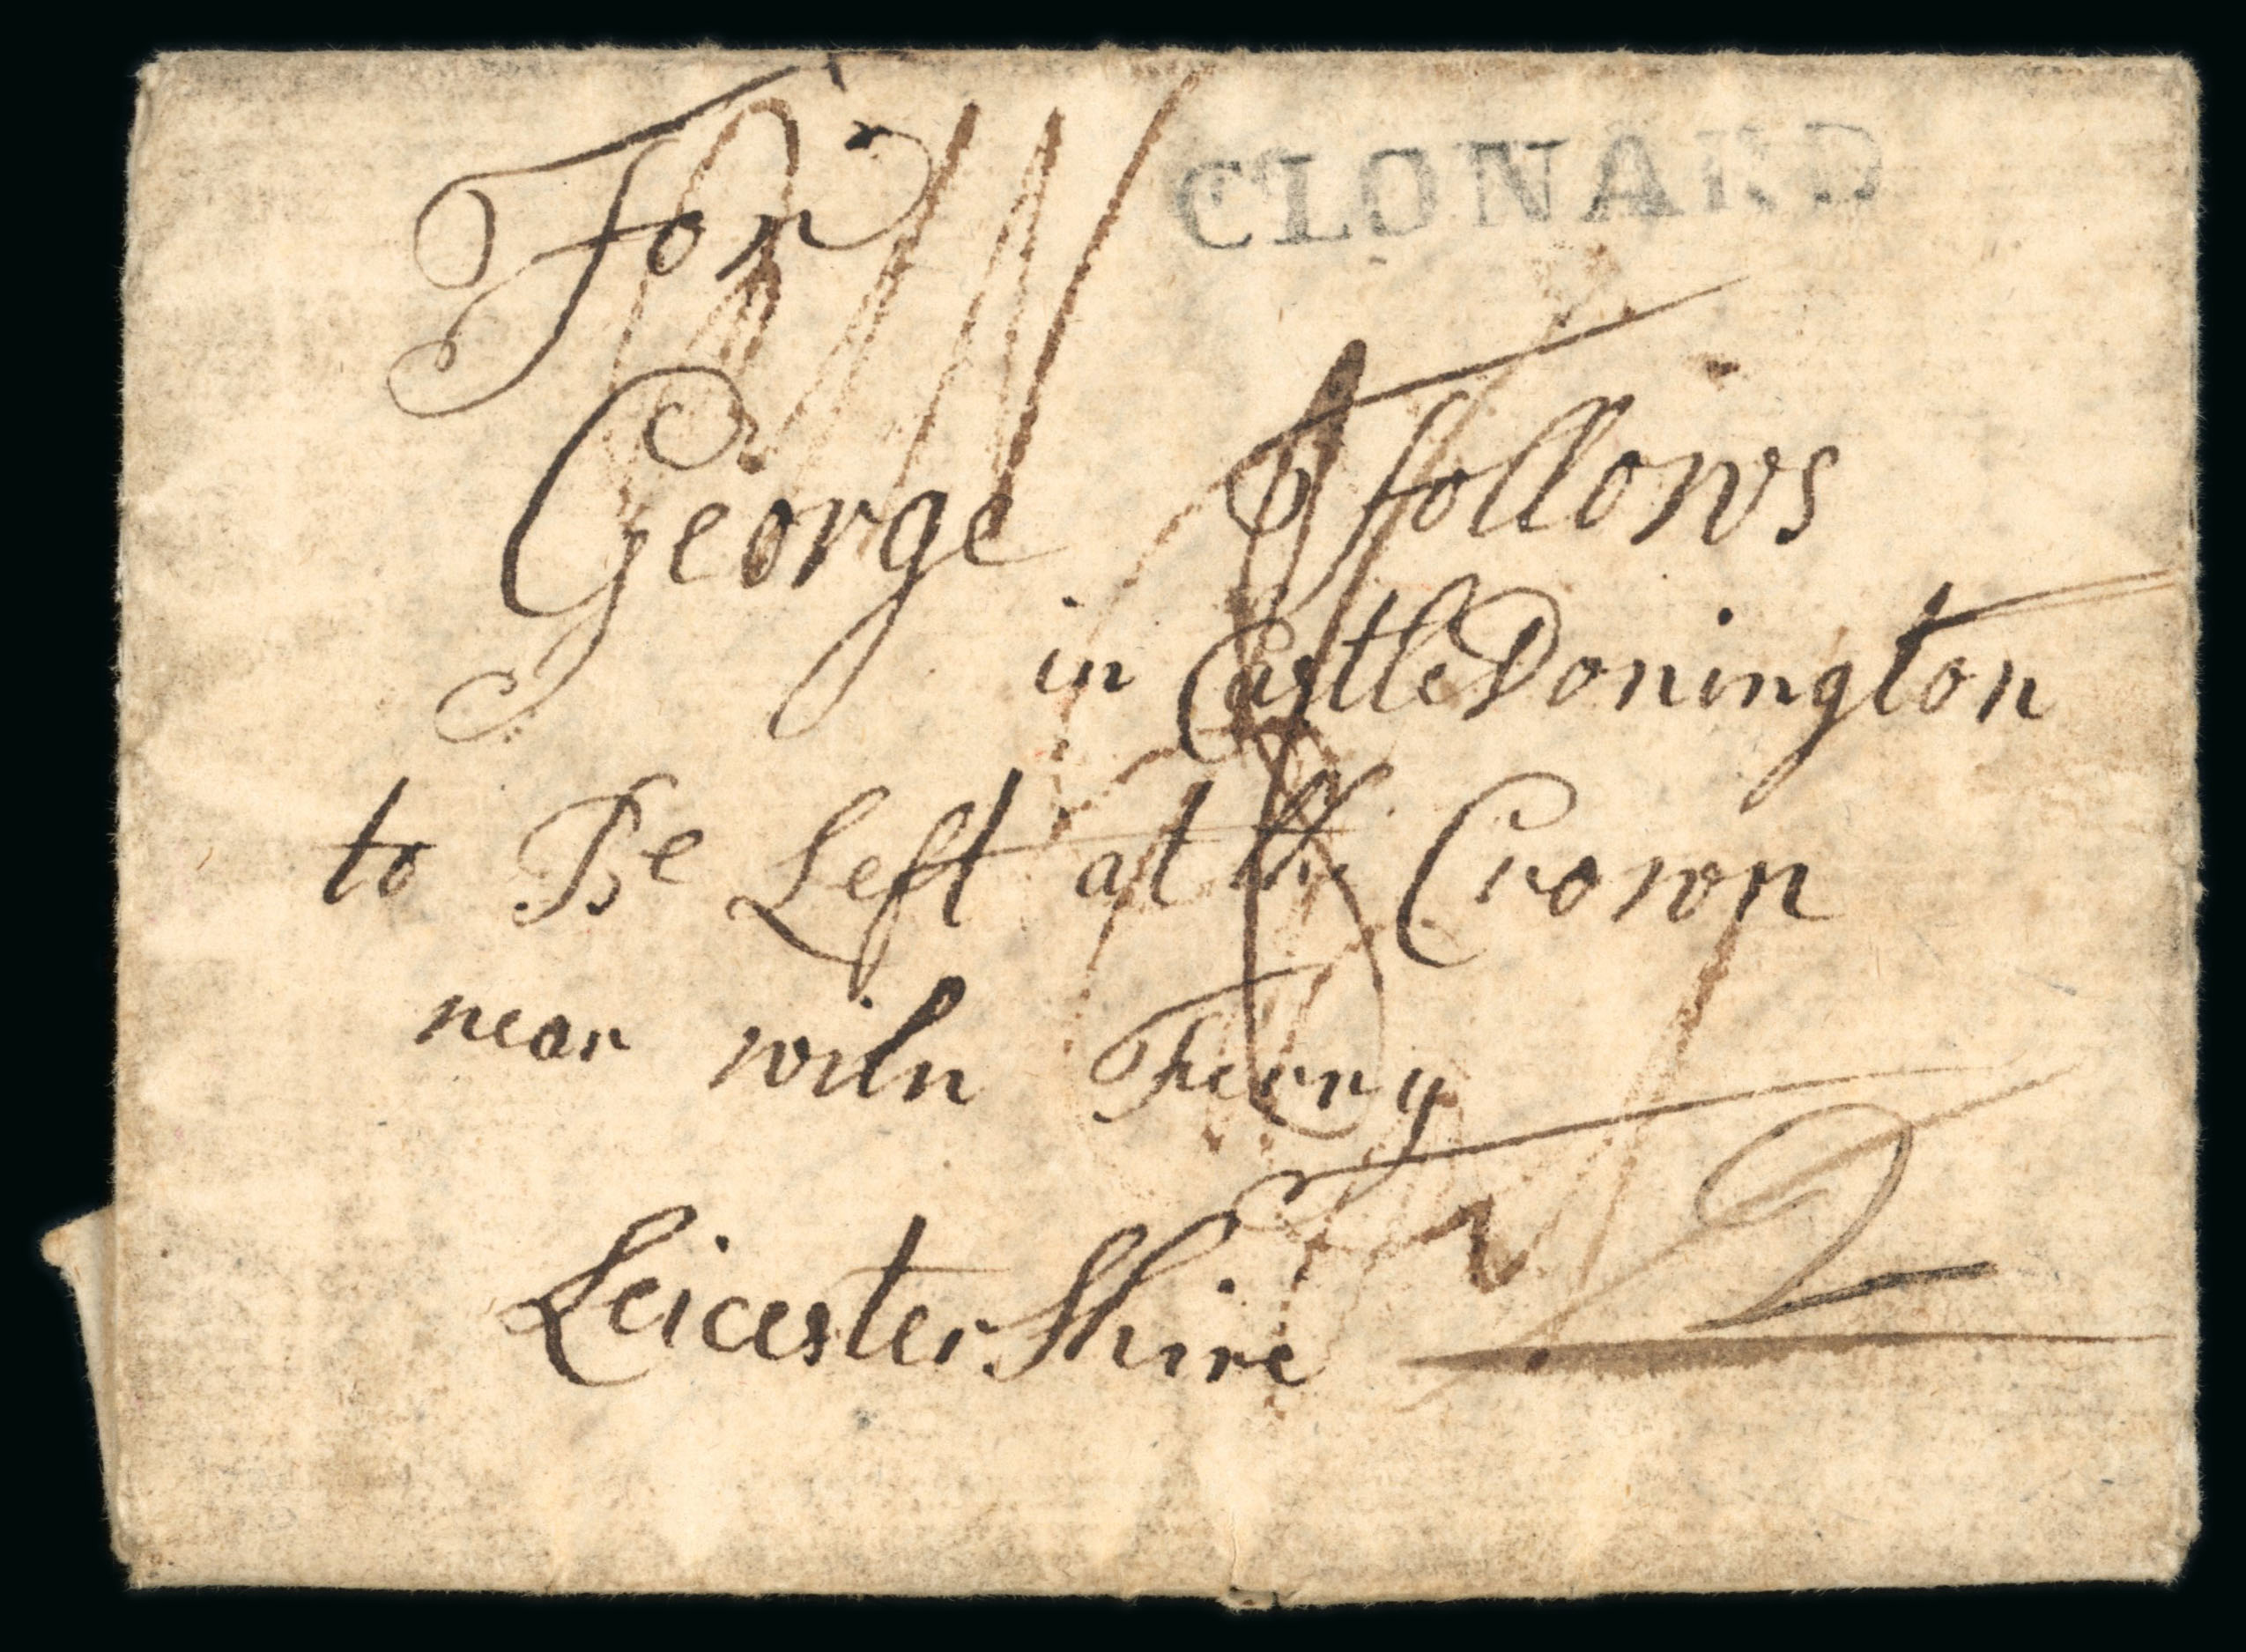 CLONARD
For
George Ffollows
in Castle Donington
to Be Left at the Crown
near wiln Ferry
LeicesterShire
2